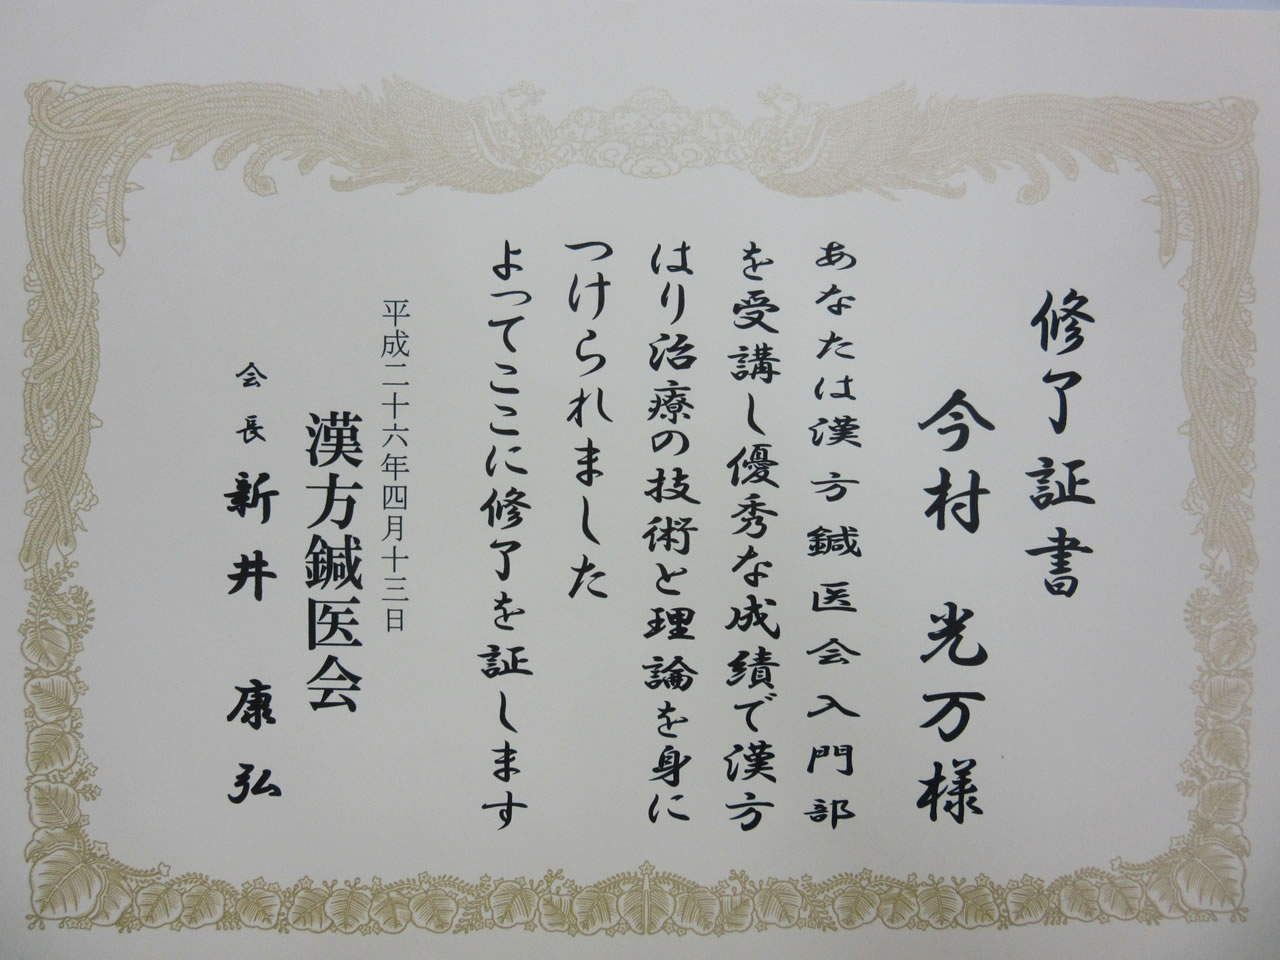 修了証書
今村 光万様
あなたは漢方鍼医会入門部
を受講し優秀な成績で漢方
はり治療の技術と理論を身に
つけられました
よってここに修了を証します
平成二十六年四月十三日
漢方鍼医会
会長 新井 康弘